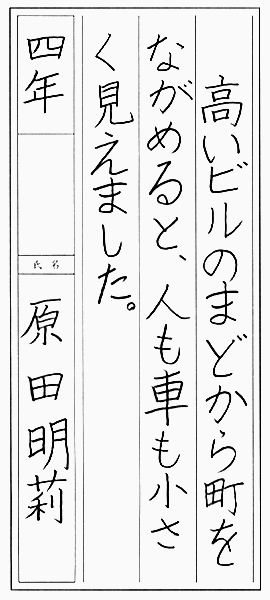 高いビルのまどから町を
ながめると、人も車も小さ
く見えました。
四年
氏名
原田明莉